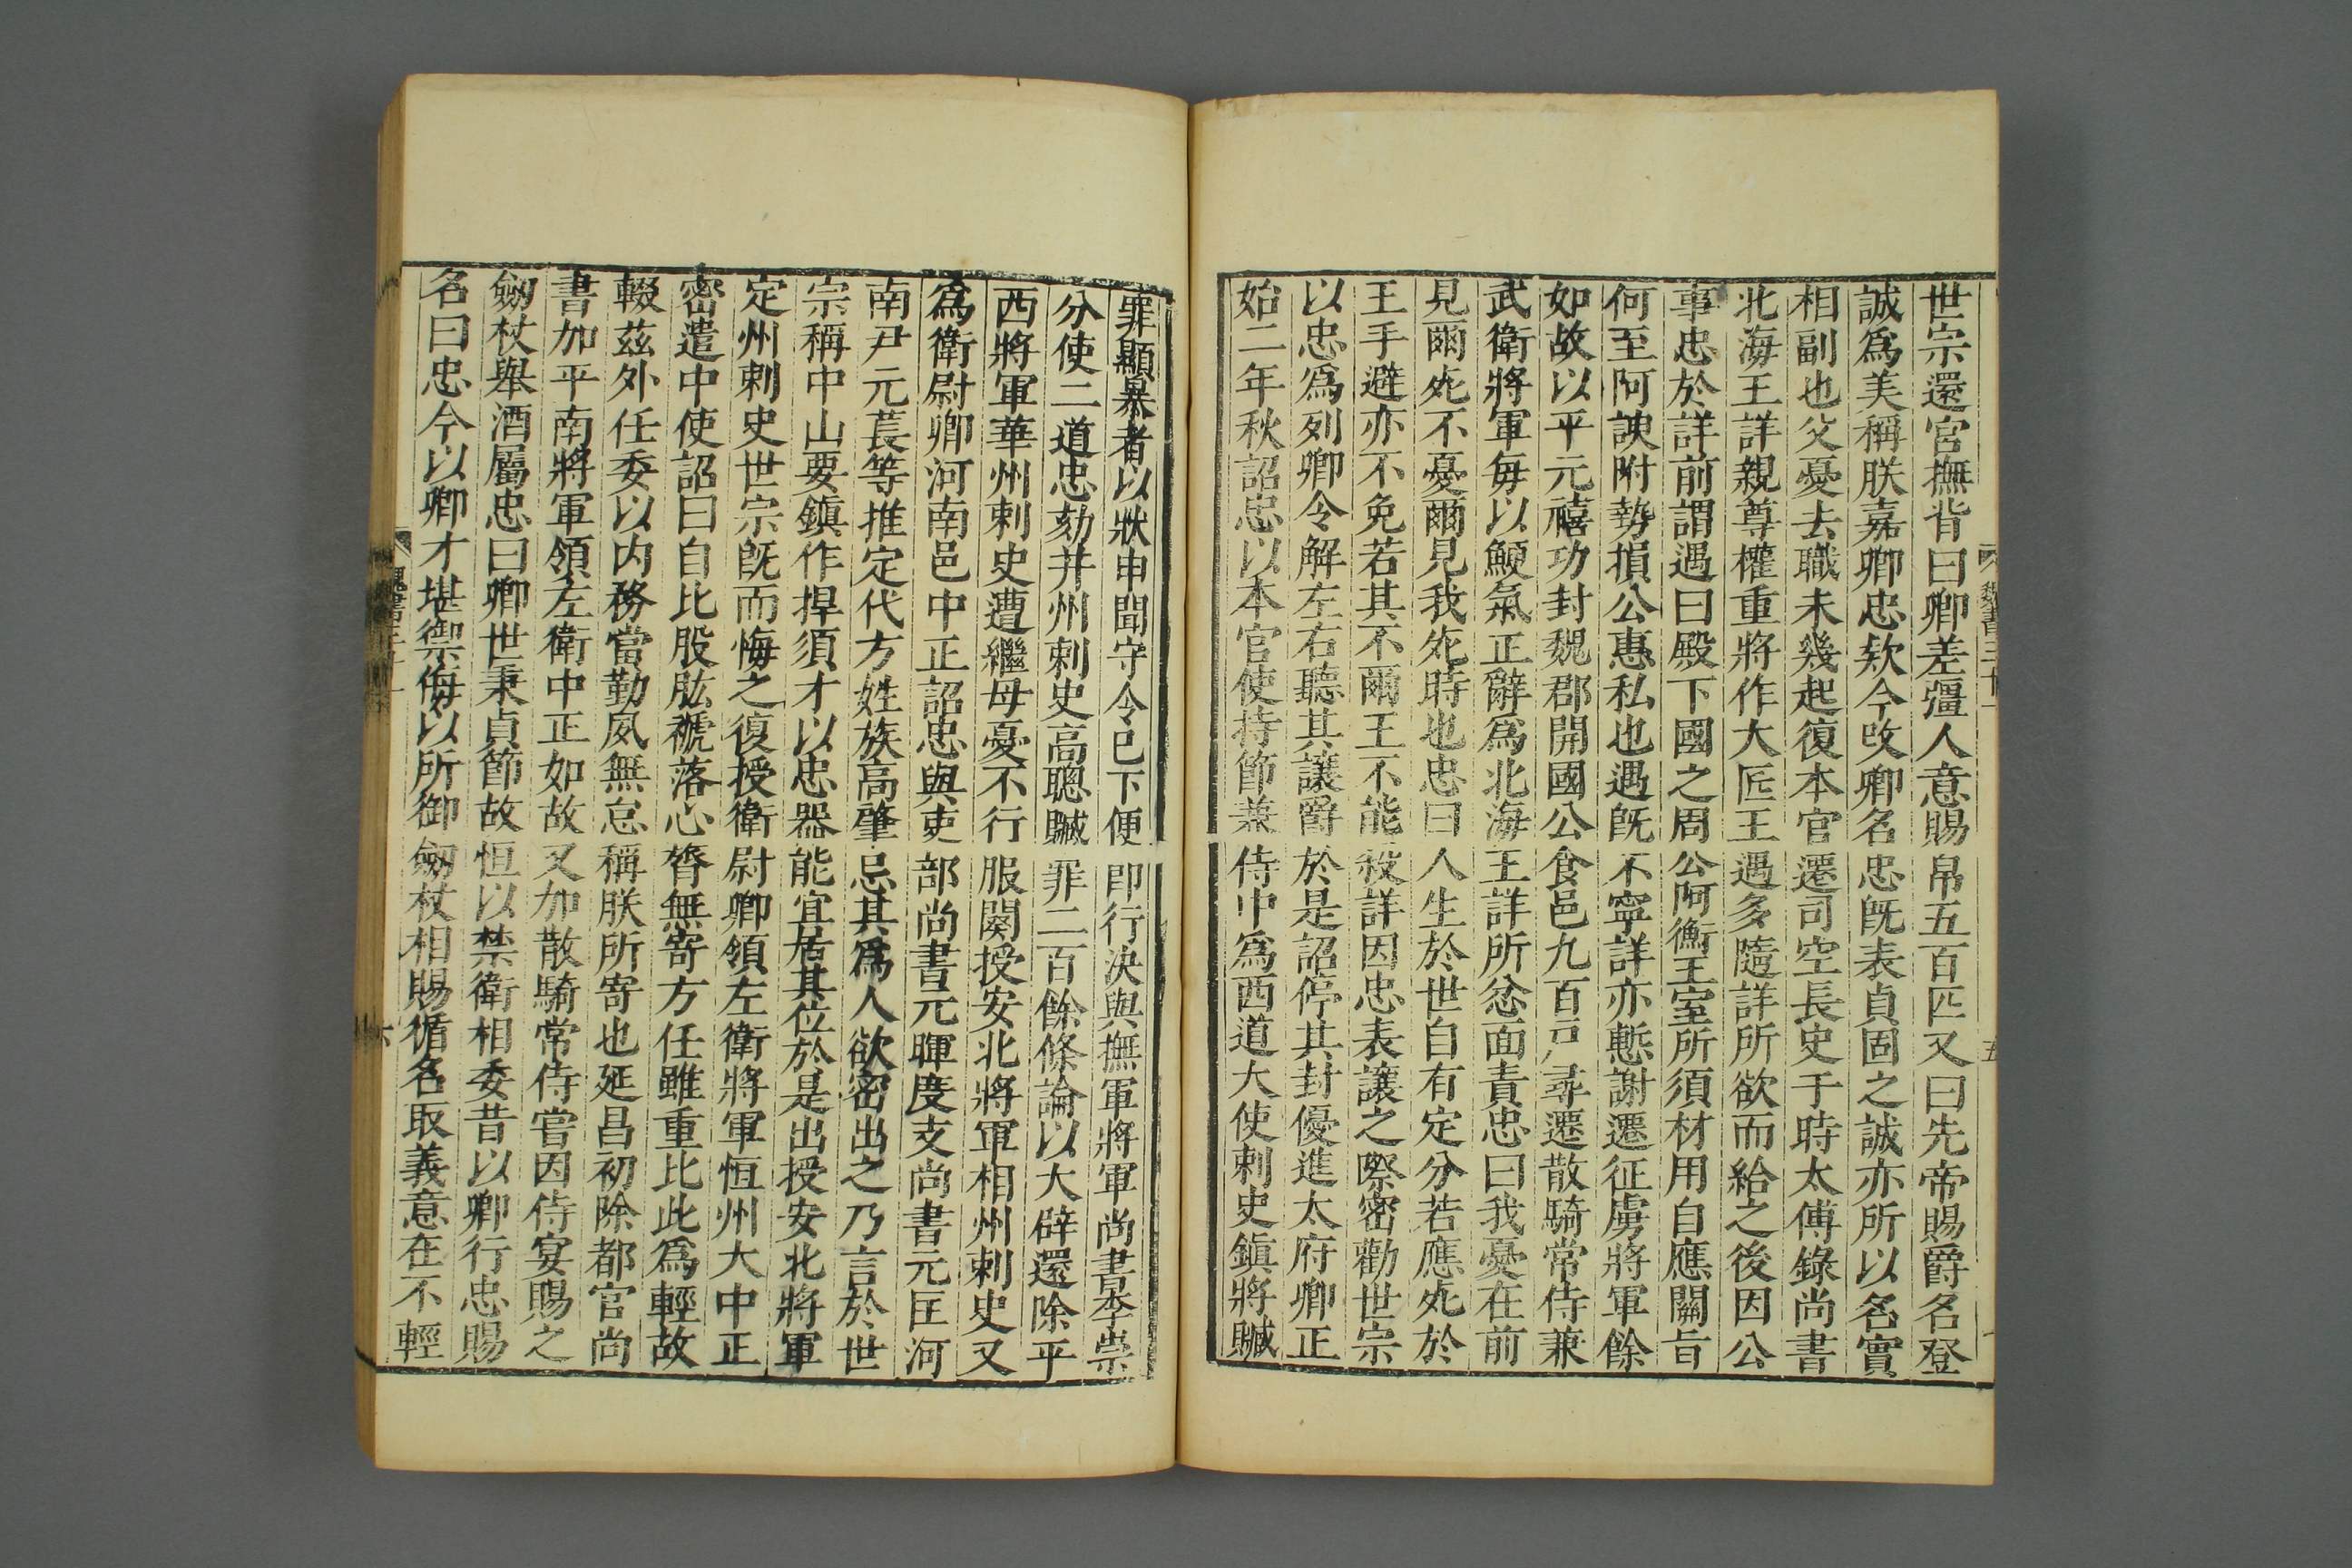 世宗還宮撫背曰卿差彊人意賜帛五百匹又曰先帝賜爵名登
誠爲美稱朕嘉卿忠欵今改卿名忠旣表貞固之誠亦所以名實
相副也父憂去職未幾起復本官遷司空長史于時太傅錄尚書
北海王詳親尊權重將作大匠王遇多隨詳所欲而給之後因公
事忠於詳前謂遇曰殿下國之周公阿衡王室所須材用自應關旨
何至阿諛附勢損公惠私也遇旣不寧詳亦慙謝遷征虜將軍餘
如故以平元禧功封魏郡開國公食邑九百戶尋遷散騎常侍兼
武衛將軍每以鯁氣正辭爲北海王詳所忿面責忠曰我憂在前
見爾死不憂爾見我死時也忠曰人生於世自有定分若應死於
王手避亦不免若其不爾王不能殺詳因忠表讓之際密勸世宗
以忠爲列卿令解左右聽其讓爵於是詔停其封優進太府卿正
始二年秋詔忠以本官使持節兼侍中爲西道大使刺史鎭將贓
罪顯暴者以狀申聞守令已下便卽行決與撫軍將軍尚書李崇
分使二道忠劾并州刺史高聰贓罪二百餘條論以大辟還除平
西將軍華州刺史遭繼母憂不行服闋授安北將軍相州刺史又
爲衛尉卿河南邑中正詔忠與吏部尚書元暉度支尚書元匡河
南尹元萇等推定代方姓族高肇忌其爲人欲密出之乃言於世
宗稱中山要鎭作捍須才以忠器能宜居其位於是出授安北將軍
定州刺史世宗旣而悔之復授衛尉卿領左衛將軍恒州大中正
密遣中使詔曰自比股肱褫落心膂無寄方任雖重比此爲輕故
輟茲外任委以內務當勤夙無怠稱朕所寄也延昌初除都官尚
書加平南將軍領左衛中正如故又加散騎常侍嘗因侍宴賜之
劒杖舉酒屬忠曰卿世秉貞節故恒以禁衛相委昔以卿行忠賜
名曰忠今以卿才堪禦侮以所御劒杖相賜循名取義意在不輕